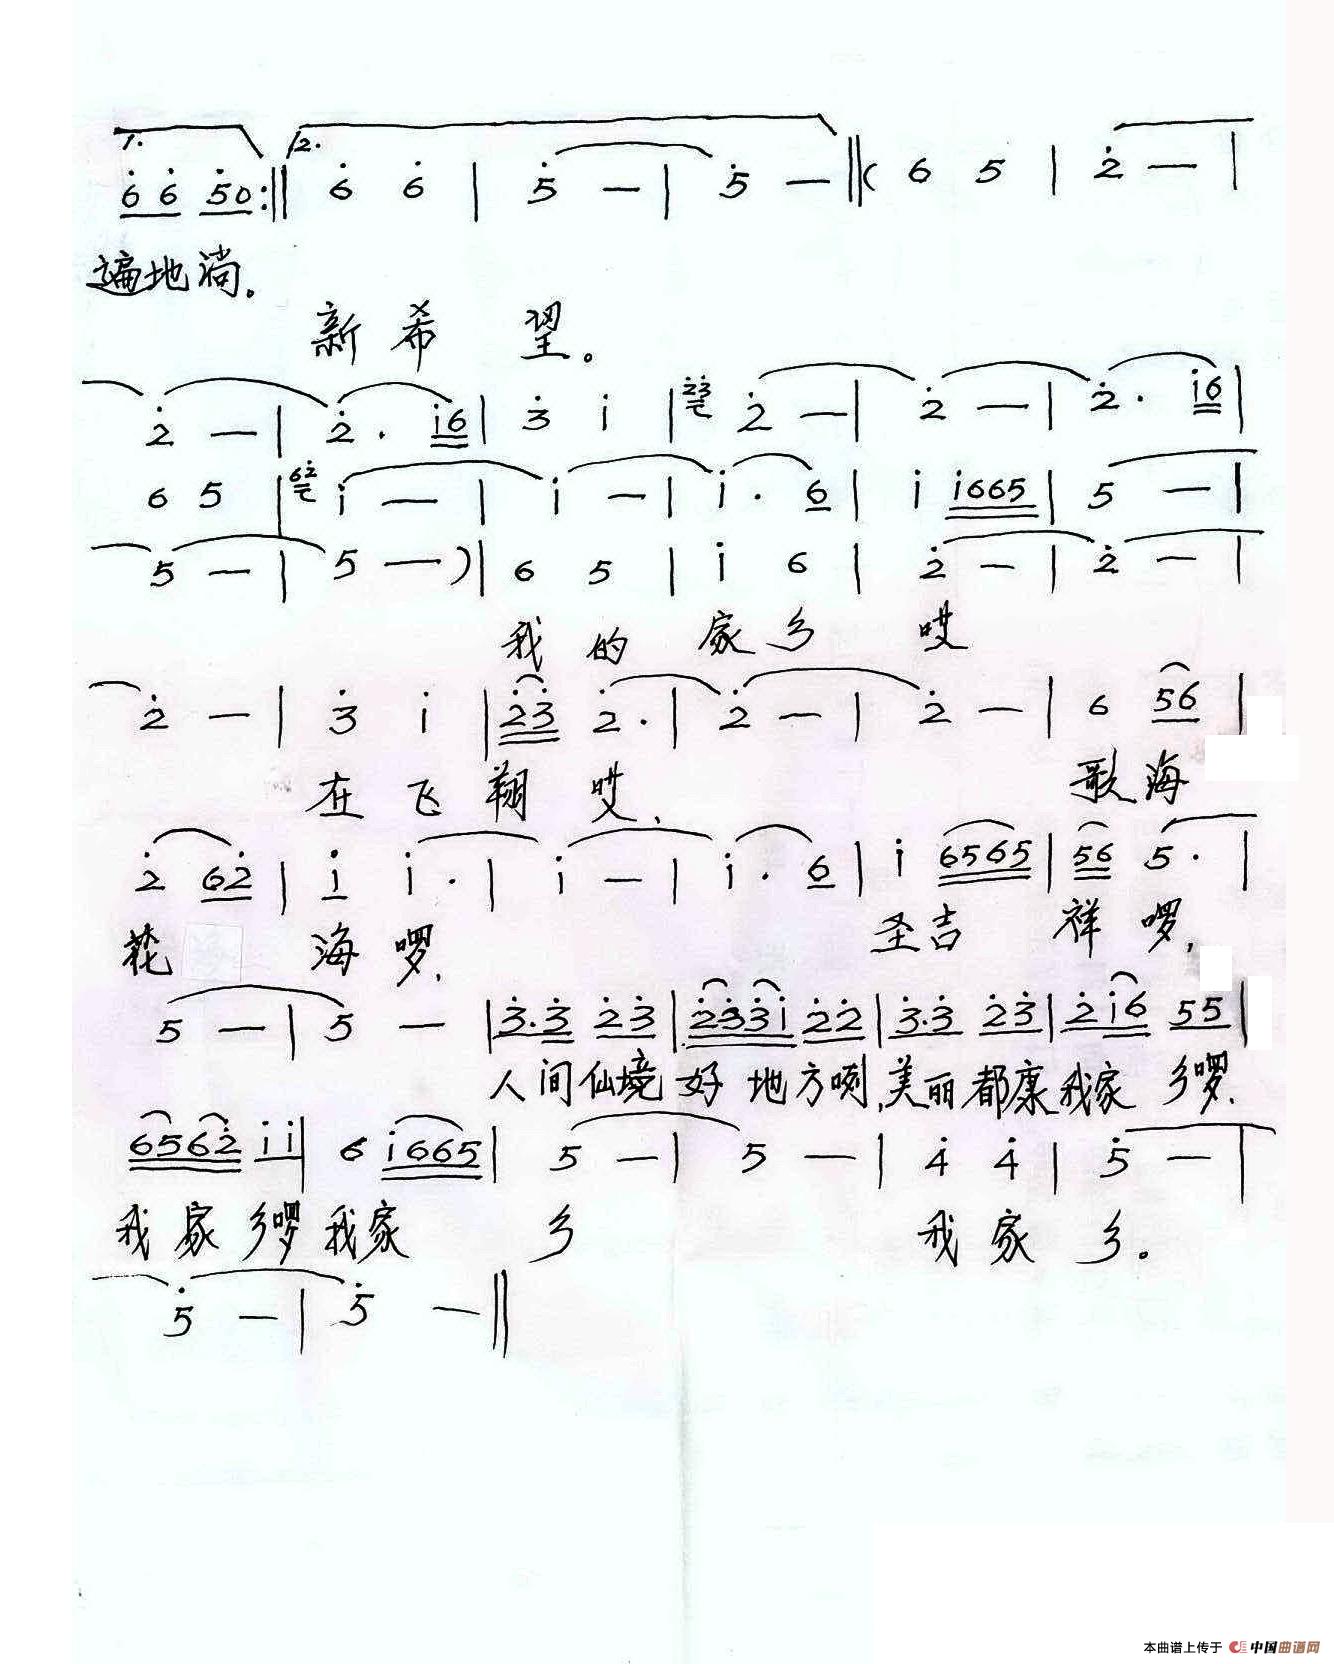 1. 2.
6 6 5 0 :‖ 6 6 | 5 — | 5 — ‖( 6 5 | 2 — |
遍地淌。
新希望。
2 — | 2 · i 6 | 3 i | 23 2 — | 2 — | 2 · i 6 |
6 5 | 62 i — | i — | i · 6 | i i665 | 5 — |
5 — | 5 — ) | 6 5 | i 6 | 2 — | 2 — |
我的家乡 哎
2 — | 3 i | 23 2 · | 2 — | 2 — | 6 56 |
在飞翔哎, 歌海
2 62 | i i · | i — | i · 6 | i 6565 | 56 5 · |
花 海啰, 圣吉 祥啰,
5 — | 5 — | 3·3 23 | 2333i 22 | 3·3 23 | 2i6 55 |
人间仙境好地方咧,美丽都康我家乡啰,
6562 ii | 6 i665 | 5 — | 5 — | 4 4 | 5 — |
我家乡啰我家 乡 我家乡。
5 — | 5 — ‖
本曲谱上传于 中国曲谱网